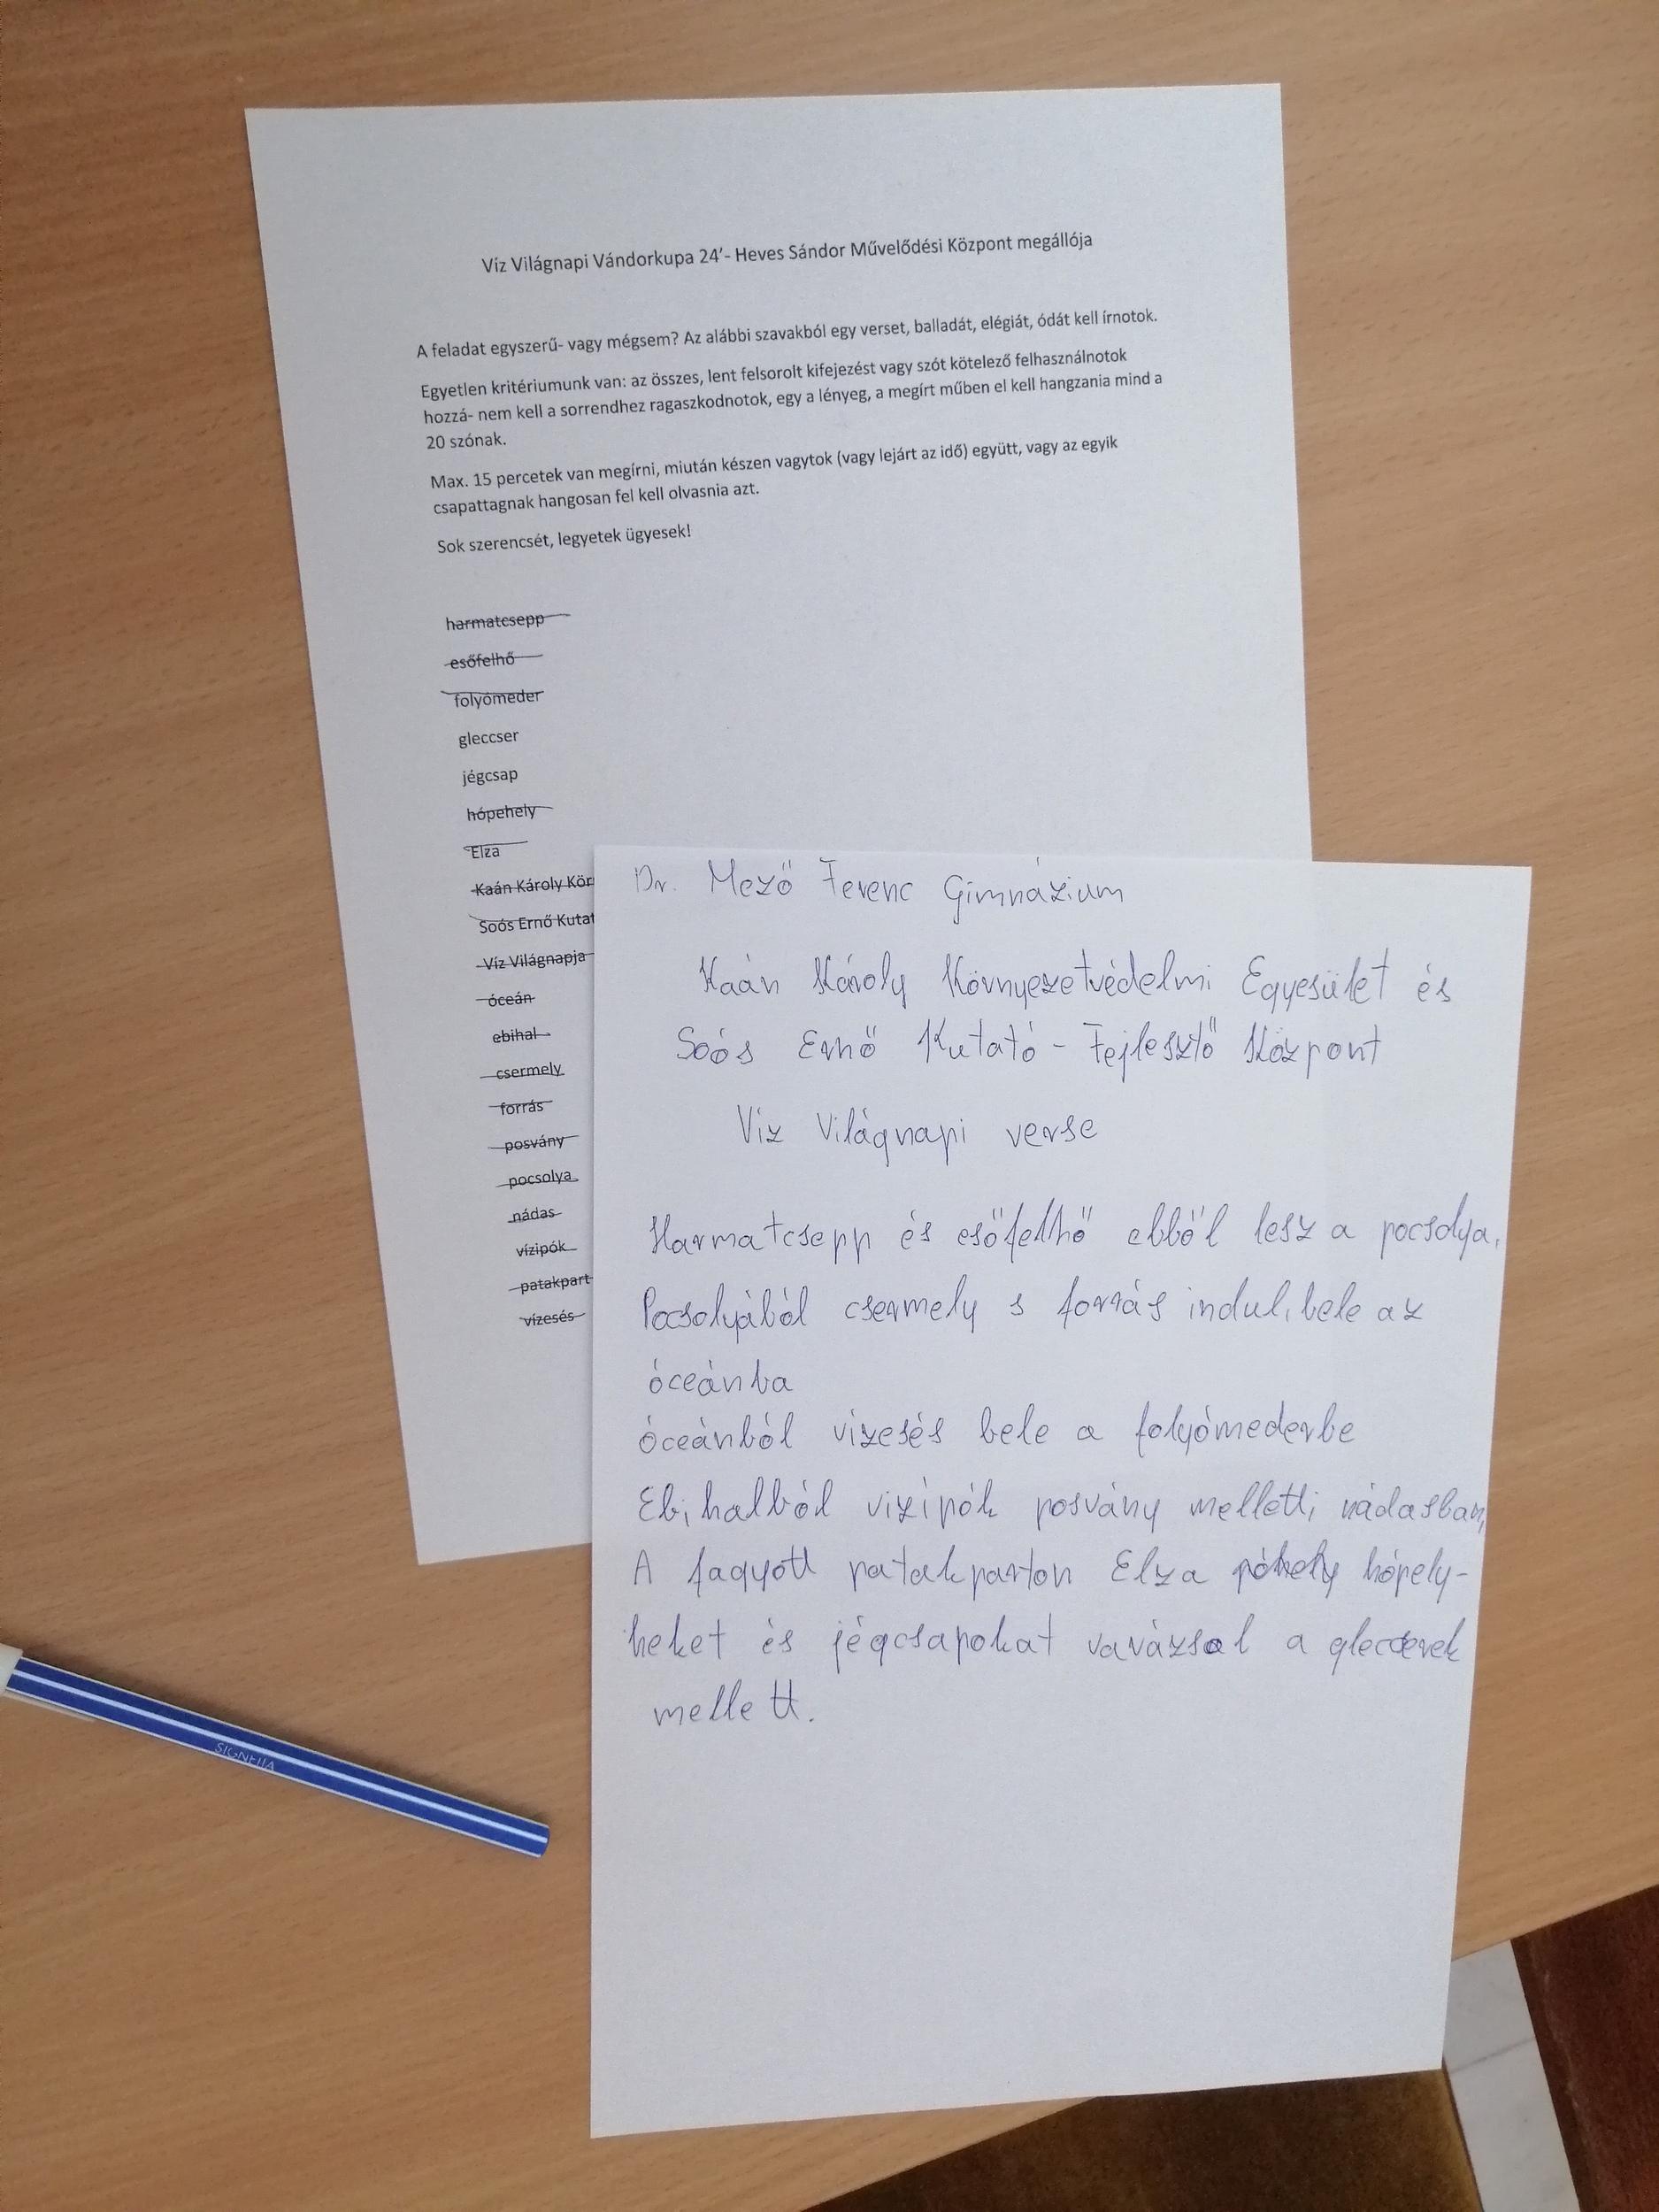 Víz Világnapi Vándorkupa 24'- Heves Sándor Művelődési Központ megállója
A feladat egyszerű- vagy mégsem? Az alábbi szavakból egy verset, balladát, elégiát, ódát kell írnotok.
Egyetlen kritériumunk van: az összes, lent felsorolt kifejezést vagy szót kötelező felhasználnotok
hozzá- nem kell a sorrendhez ragaszkodnotok, egy a lényeg, a megírt műben el kell hangzania mind a
20 szónak.
Max. 15 percetek van megírni, miután készen vagytok (vagy lejárt az idő) együtt, vagy az egyik
csapattagnak hangosan fel kell olvasnia azt.
Sok szerencsét, legyetek ügyesek!
harmatcsepp
esőfelhő
folyómeder
gleccser
jégcsap
hópehely
Elza
Kaán Károly Kör
Soós Ernő Kutat
Víz Világnapja
óceán
ebihal
csermely
forrás
posvány
pocsolya
nádas
vízipók
patakpart
vízesés
Dr. Mező Ferenc Gimnázium
Kaán Károly Környezetvédelmi Egyesület és
Soós Ernő Kutató - Fejlesztő Központ
Víz Világnapi verse
Harmatcsepp és esőfelhő ebből lesz a pocsolya,
Pocsolyából csermely s forrás indul, bele az
óceánba
óceánból vízesés bele a folyómederbe
Ebihalból vízipók posvány melletti nádasban,
A fagyott patakparton Elza hópely-
heket és jégcsapokat varázsol a gleccserek
mellett.
SIGNETTA